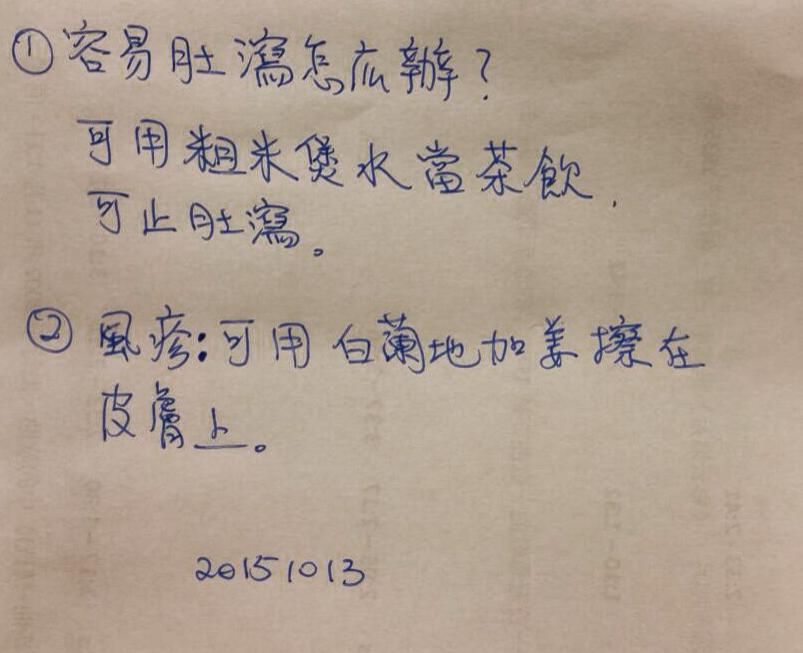 ① 容易肚瀉怎広辦?
可用粗米煲水當茶飲,
可止肚瀉。
② 風疹:可用白蘭地加姜擦在
皮膚上。
20151013